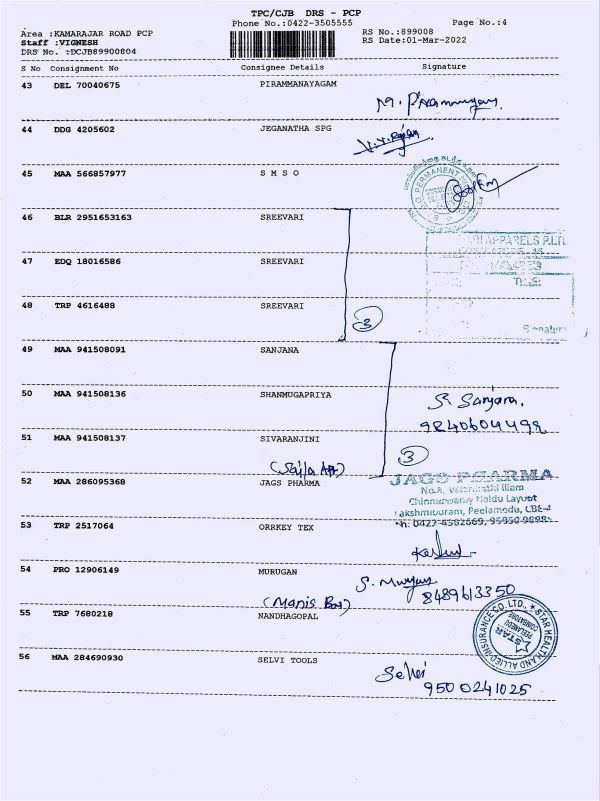 TPC/CJB DRS - PCP
Phone No.:0422-3505555
Page No.:4
Area :KAMARAJAR ROAD PCP
RS No.:899008
Staff :VIGNESH
RS Date:01-Mar-2022
DRS No. :DCJB89900804
S No Consignment No Consignee Details Signature
43 DEL 70040675 PIRAMMANAYAGAM
44 DDG 4205602 JEGANATHA SPG
45 MAA 566857977 S M S O
PERMANENT
46 BLR 2951653163 SREEVARI
APPARELS P.LTD
47 EDQ 18016586 SREEVARI
48 TRP 4616488 SREEVARI
3
Signature
49 MAA 941508091 SANJANA
50 MAA 941508136 SHANMUGAPRIYA
S. Sanjana.
9840604498
51 MAA 941508137 SIVARANJINI
3
52 MAA 286095368 JAGS PHARMA
JAGS PHARMA
Naidu Layout
Peelamedu, CBE-4
53 TRP 2517064 ORRKEY TEX
54 PRO 12906149 MURUGAN
S. Murugan
8489613350
55 TRP 7680218 NANDHAGOPAL
STAR HEALTH AND ALLIED INSURANCE CO. LTD.,
STAR
PEELAMEDU
COIMBATORE
56 MAA 284690930 SELVI TOOLS
Selvi
9500241025